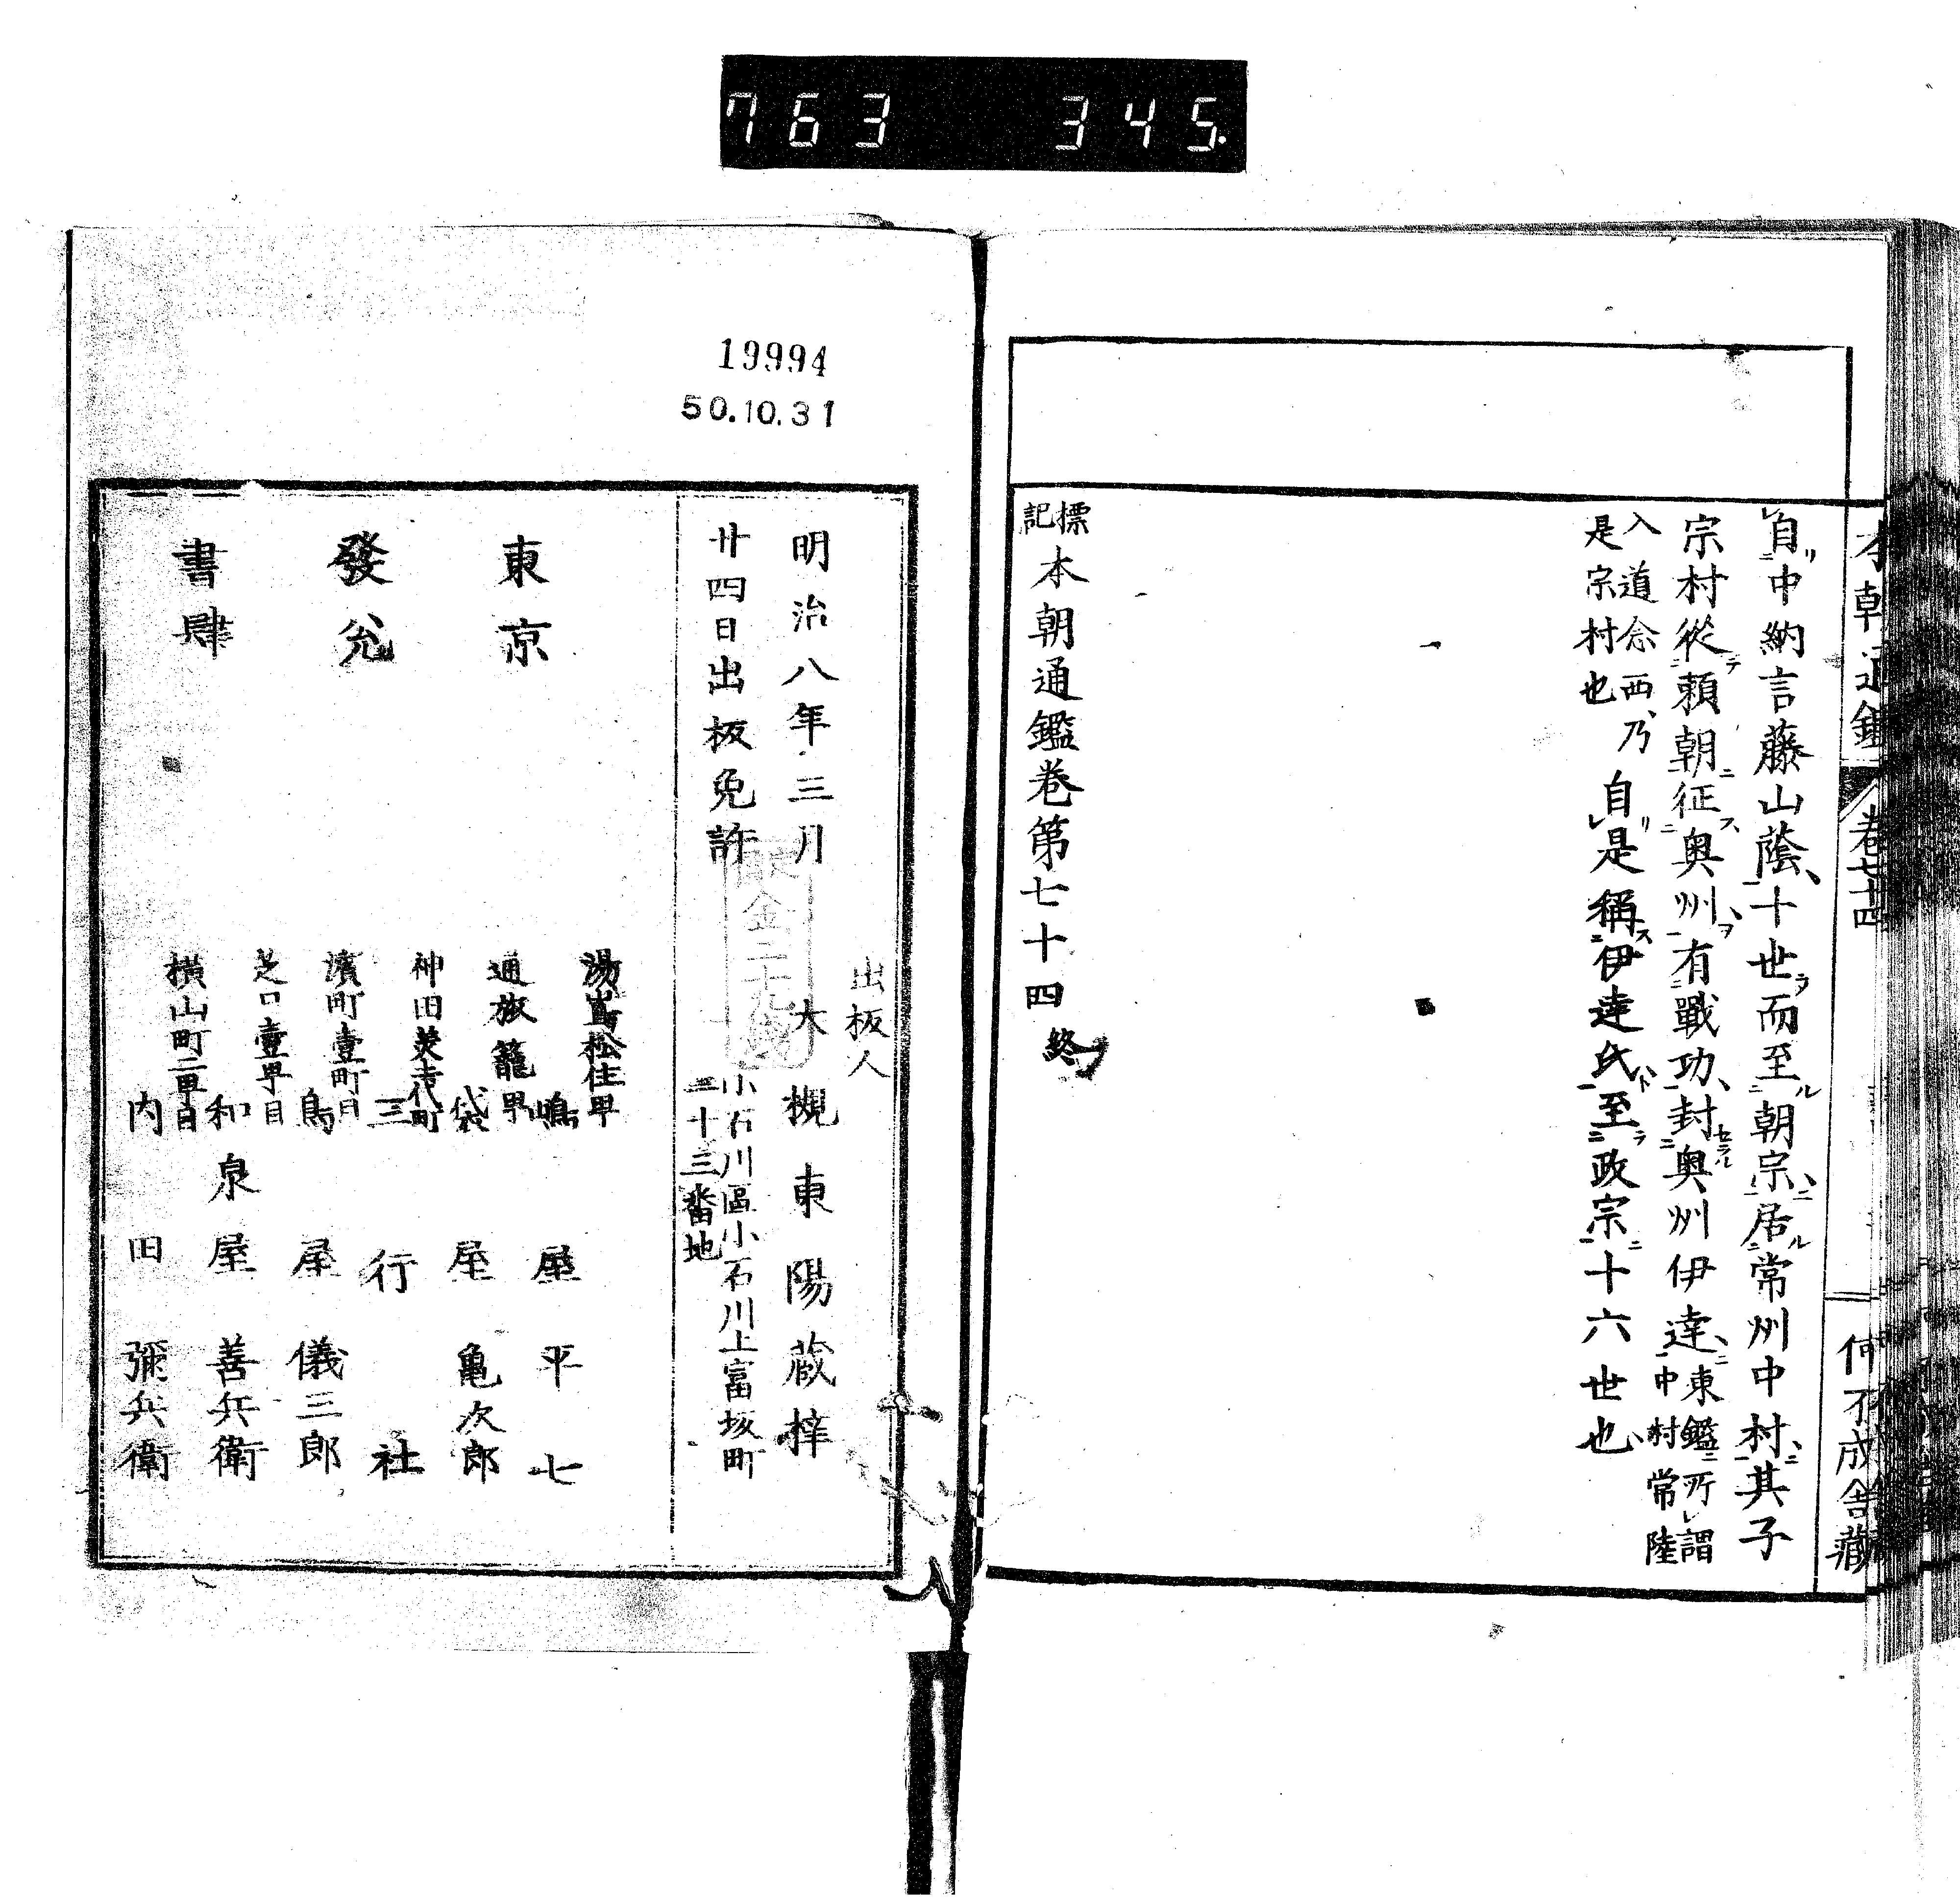 763 345.
本朝通鑑 卷七十四 何不成舎藏
自中納言藤山蔭十世而至朝宗居常州中村其子
宗村從頼朝征奥州有戰功封奥州伊達東鑑所謂
中村常陸
入道念西乃
是宗村也
自是稱伊達氏至政宗十六世也
標記本朝通鑑卷第七十四終
19994
50.10.31
明治八年三月
廿四日出板免許
出板人
大槻東陽蔵梓
小石川區小石川上富坂町
二十三番地
東京
發兌
書肆
湯島松住町
嶋屋平七
通旅籠町
袋屋亀次郎
神田美土代町
三行社
濱町壹町目
鳥屋儀三郎
芝口壹丁目
和泉屋善兵衛
横山町二丁目
内田彌兵衛